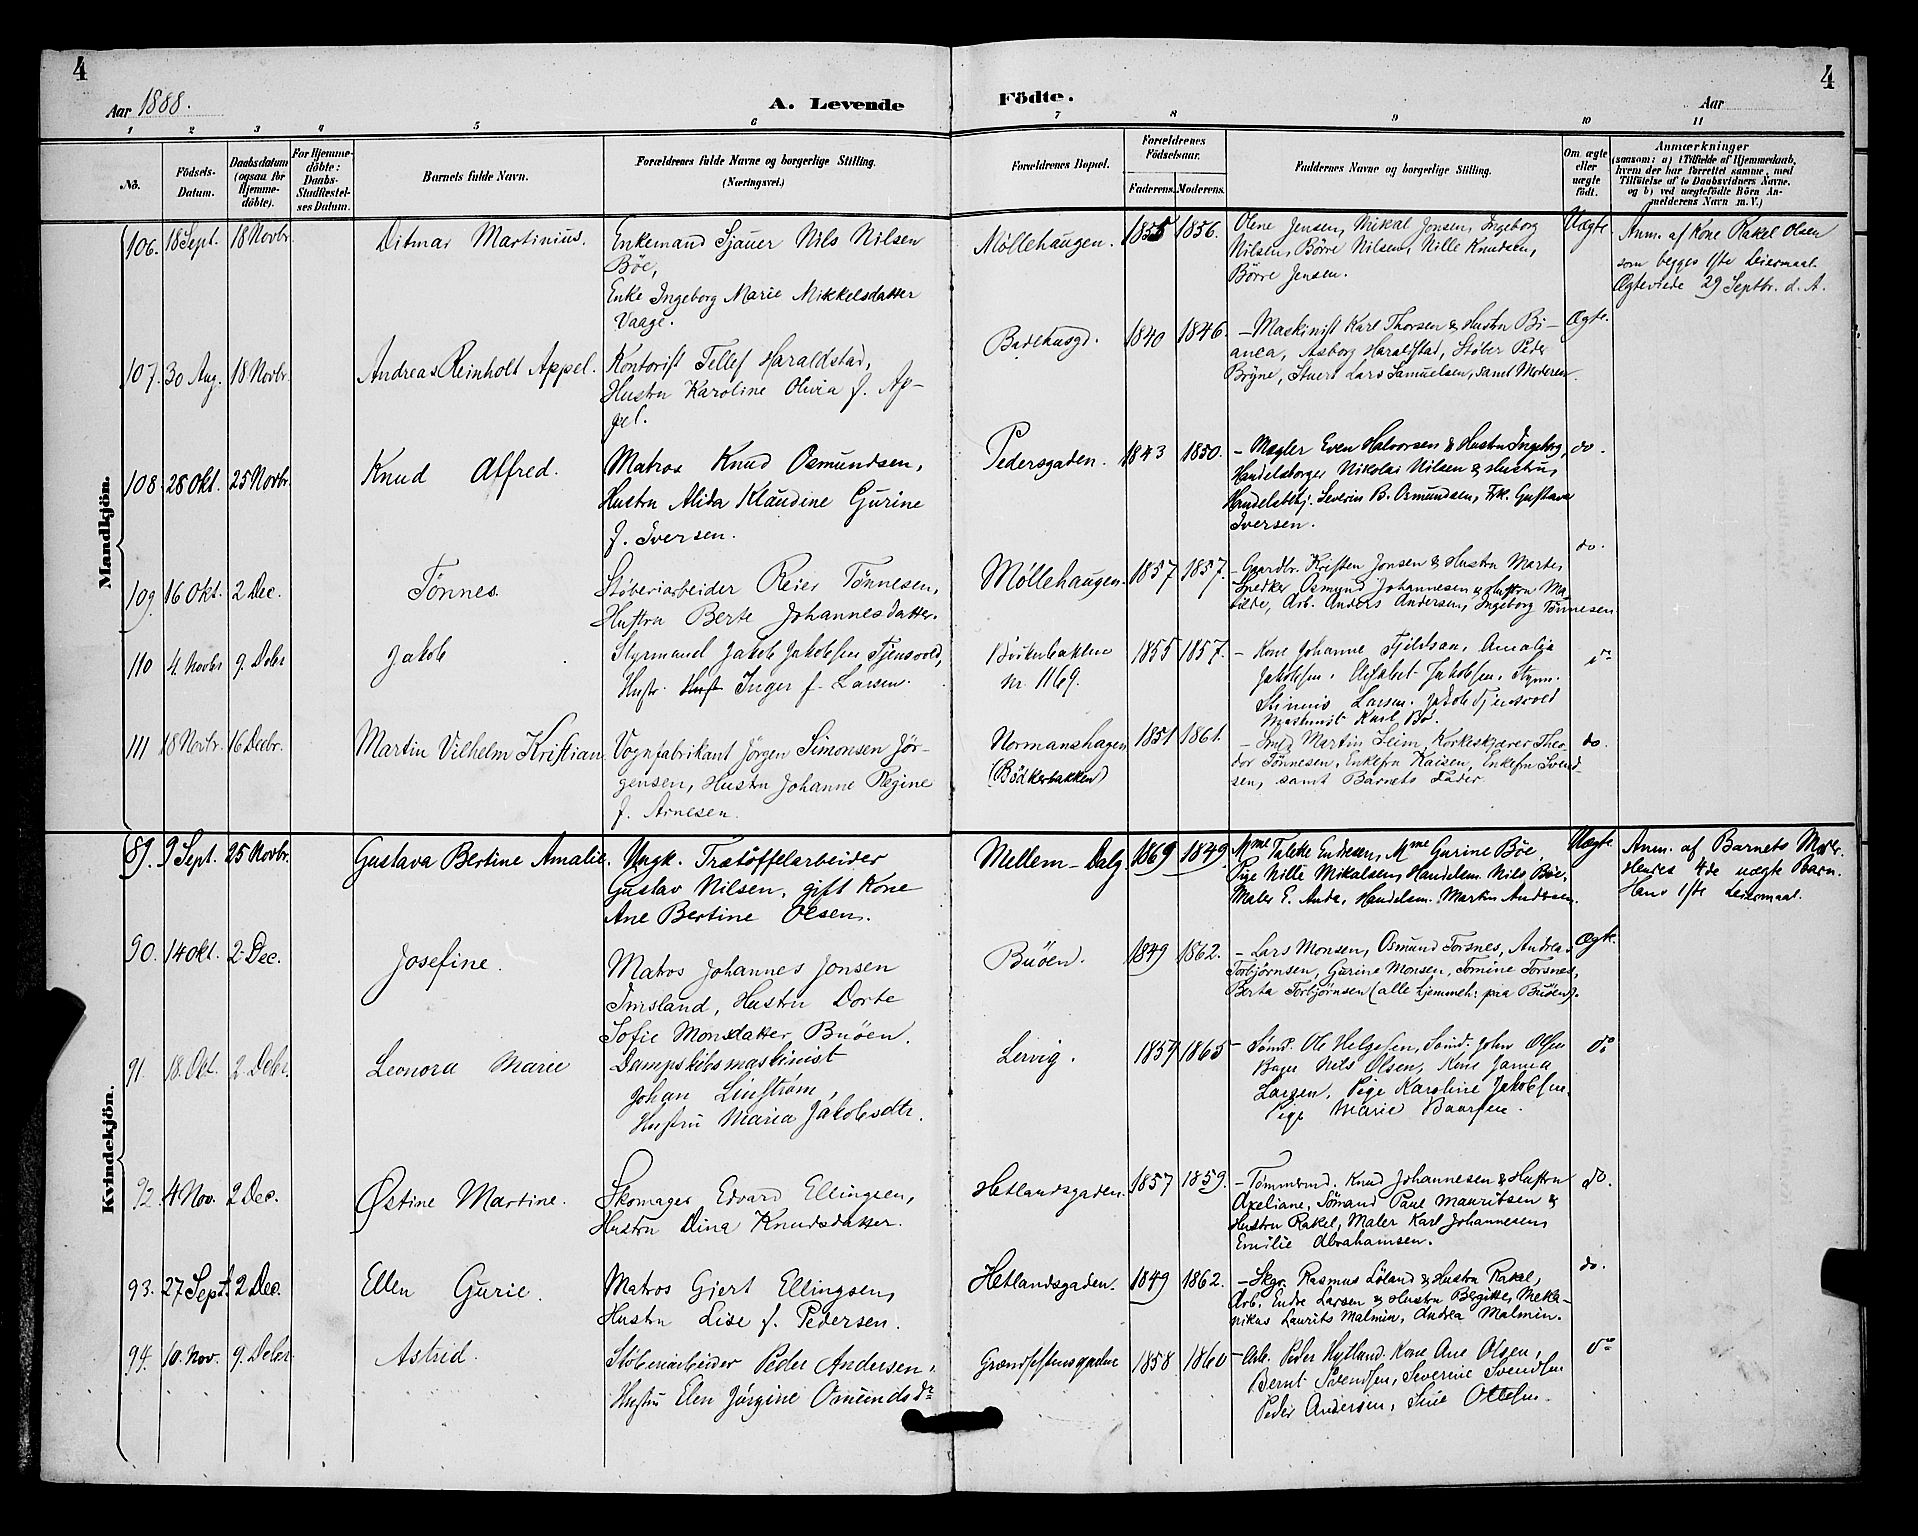 4
4
Aar 1888.
A. Levende
Födte.
Aar
1 2 3 4 5 6 7 8 9 10 11
No.
Födsels-Datum.
Daabsdatum (ogsaa for Hjemmedöbte).
For Hjemmedöbte: Daabs-Stadfestelses Datum.
Barnets fulde Navn.
Forældrenes fulde Navne og borgerlige Stilling.
(Næringsvei.)
Forældrenes Bopæl.
Forældrenes Födselsaar.
Faderens. Moderens.
Faddernes Navne og borgerlige Stilling.
Om ægte eller uægte födt.
Anmærkninger
(saasom: a) i Tilfælde af Hjemmedaab,
hvem der har forrettet samme, med
Tilföielse af to Daabsvidners Navne,
og b) ved uægtefödte Börn An-
melderens Navn m. V.)
Mandkjön.
106. 18 Sept. 18 Novbr. Ditmar Martinius. Enkemand Sjauer Nils Nilsen
Böe,
Enke Ingeborg Marie Mikkelsdatter
Vaage.
Møllehaugen. 1855 1856. Olene Jensen, Mikal Jonsen, Ingeborg
Nilsen, Börre Nilsen, Nille Knudsen,
Börre Jensen.
Uægte. Anm. af Kone Rakel Olsen
som begges 1ste Leiermaal.
Ægteviede 29 Septbr. d. A.
107. 30 Aug. 18 Novbr. Andreas Reinholt Appel. Kontorist Tellef Haraldstad,
Hustru Karoline Olivia f. Ap-
pel.
Badehusgd. 1840 1846. - Maskinist Karl Thorsen & Hustru Bi-
anca, Asborg Haraldstad, Støber Peder
Bryne, Stuert Lars Samuelsen, samt Moderen.
Ægte.
108. 28 Okt. 25 Novbr. Knud Alfred. Matros Knud Osmundsen,
Hustru Alida Klaudine Gurine
f. Iversen.
Pedersgaden. 1843 1850. - Mægler Even Halvorsen & Hustru Ingeborg,
Handelsborger Nikolai Nilsen & Hustru,
Handelsbtj. Severin B. Osmundsen, Frk. Gustava
Iversen.
do.
109. 16 Okt. 2 Dec. Tönnes. Støberiarbeider Reier Tönnesen,
Hustru Berte Johannesdatter.
Møllehaugen. 1857 1857. - Gaardbr. Kristen Jonsen & Hustru Marte,
Snedker Osmund Johannesen & Hustru Ma-
tilde, Arb. Anders Andersen, Ingeborg Tönnesen
do.
110 4. Novbr 9. Debr Jakob Styrmand Jakob Jakobsen Tjensvold,
Hustr. Inger f. Larsen.
Nr. 1169. 1855 1857. - Kone Johanne Fjeldsaa, Amalia
Jakobsen. Elisabet Jakobsen, Styrm.
Larsen. Jakob Tjensvold
Maskinist Karl Bö.
do
111 18 Novbr. 16 Decbr. Martin Vilhelm Kristian. Vognfabrikant Jörgen Simonsen Jör-
gensen, Hustru Johanne Regine
f. Arnesen.
Normanshagen
(Bödkerbakken)
1851 1861. - Smed Martin Leim, Korkeskjærer Theo-
dor Tönnesen, Enkefru Kaisen, Enkefru Svend-
sen, samt Barnets Fader.
do.
Kvindekjön.
89. 9 Sept. 25 Novbr. Gustava Bertine Amalie. Ungk. Trætöffelarbeider
Gustav Nilsen, gift Kone
Ane Bertine Olsen.
Mellem-Dalg. 1869 1849 Mme Talette Endresen, Mme Gurine Böe,
Pige Nille Mikalsen, Handelsm. Nils Böe,
Maler E. Anda, Handelsm. Martin Andersen.
Uægte Anm. af Barnets Moder.
Hendes 4de uægte Barn.
Hans 1ste Leiermaal.
90. 14 Okt. 2 Dec. Josefine. Matros Johannes Jonsen
Imsland, Hustru Dorte
Sofie Monsdatter Buöen.
Buöen. 1849 1862. - Lars Monsen, Osmund Torsnes, Andrea
Torbjörnsen, Gurine Monsen, Tomine Torsnes,
Berta Torbjörnsen (alle hjemmeh: paa Buöen).
Ægte.
91. 18. Okt. 2. Debr. Leonora Marie Dampskibsmaskinist
Johan Linström
Hustru Maria Jakobsdtr.
Lervig. 1859 1865 - Sömd. Ole Helgesen, Sömd. John Olsen
Bager Nils Olsen, Kone Janna
Larsen, Pige Karoline Jakobsen,
Pige Marie Baarsen.
do
92. 4 Nov. 2 Dec. Østine Martine. Skomager Edvard Ellingsen,
Hustru Dina Knudsdatter.
Hetlandsgaden. 1857 1859. - Tömmermd. Knud Johannesen & Hustru
Axeliane, Sömand Paul Mauritsen &
Hustru Rakel, Maler Karl Johannesen,
Emilie Abrahamsen.
do.
93. 27 Sept. 2 Dec. Ellen Gurie. Matros Gjert Ellingsen,
Hustru Lise f. Pedersen.
Hetlandsgaden. 1849 1862. - Skgr. Rasmus Löland & Hustru Rakel,
Arb. Endre Larsen & Hustru Bergitte, Meka-
nikus Laurits Malmin, Andrea Malmin.
do.
94. 10. Nov. 9. Debr. Astrid. Støberiarbeider Peder Andersen,
Hustru Elen Jörgine Omundsdr
1858 1860 - Arb. Peder Hytland. Kone Ane Olsen,
Bernt Svendsen, Severine Svendsen
Peder Andersen, Sine Ottesen.
do